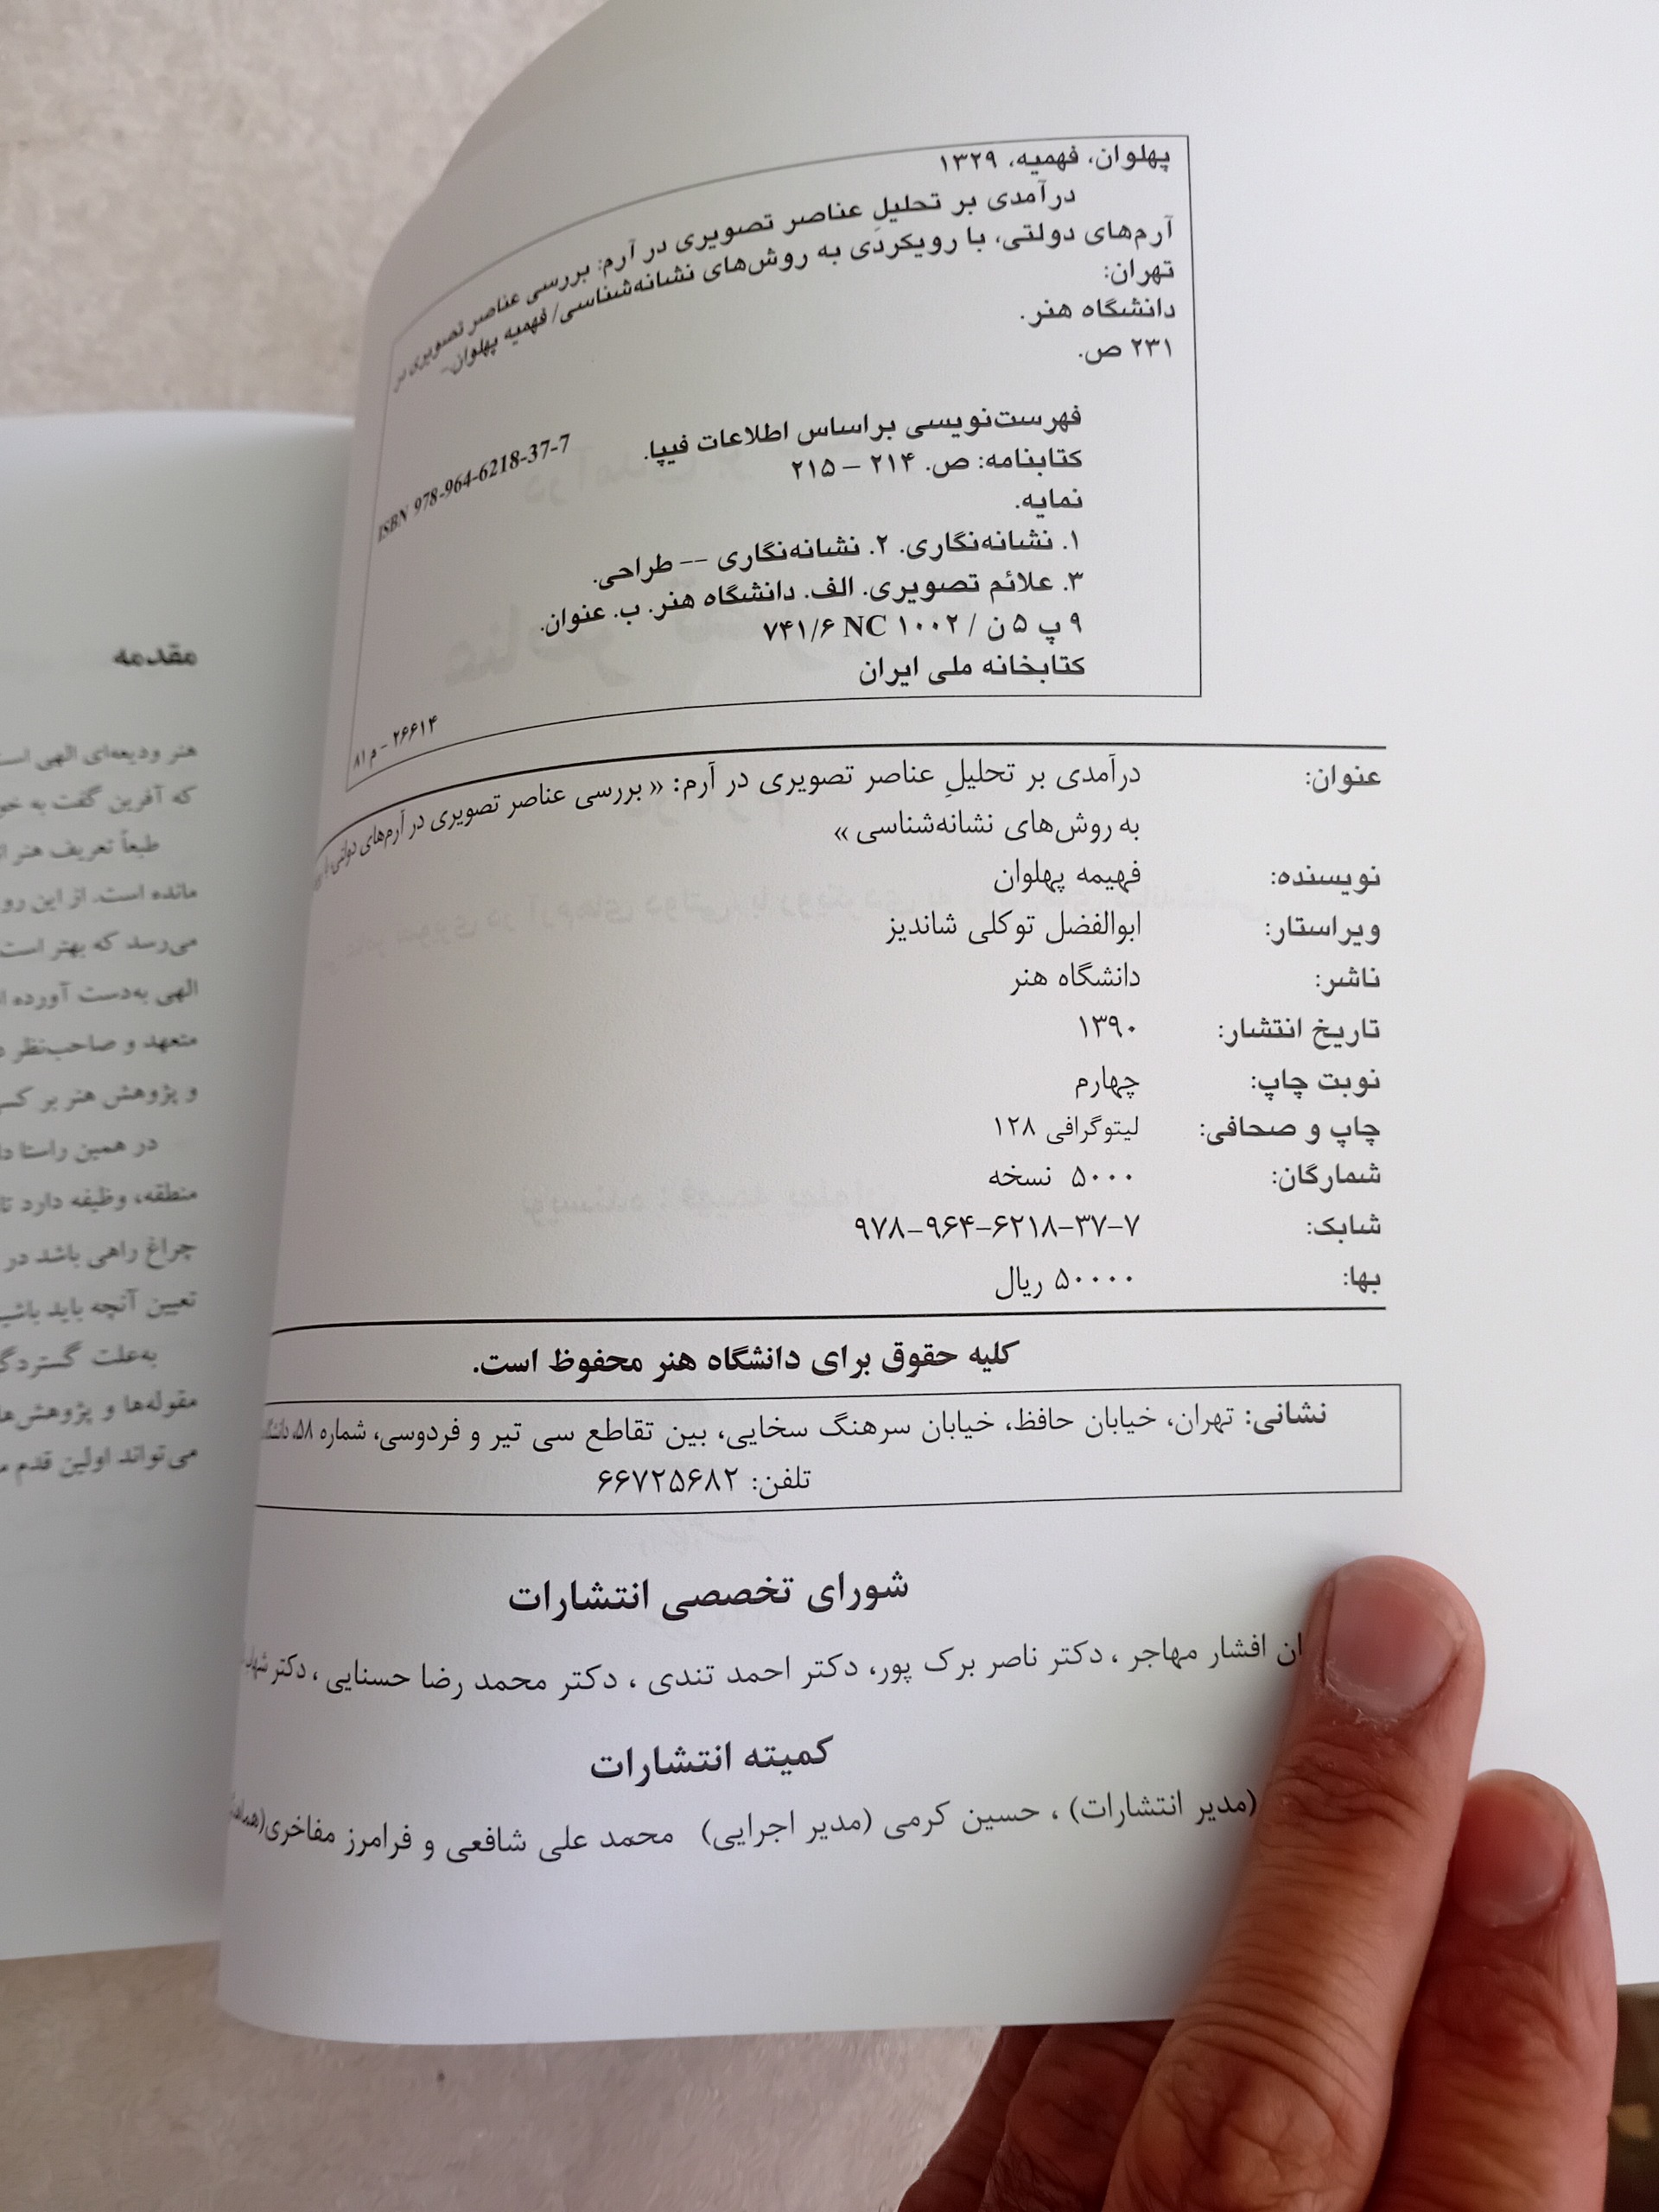 پهلوان، فهمیه، ۱۳۲۹
درآمدی بر تحلیلِ عناصر تصویری در آرم: بررسی عناصر تصویری در
آرم‌های دولتی، با رویکردی به روش‌های نشانه‌شناسی/ فهمیه پهلوان.–
تهران:
دانشگاه هنر.
۲۳۱ ص.
ISBN 978-964-6218-37-7
فهرست‌نویسی براساس اطلاعات فیپا.
کتابنامه: ص. ۲۱۴ – ۲۱۵
نمایه.
۱. نشانه‌نگاری. ۲. نشانه‌نگاری –– طراحی.
۳. علائم تصویری. الف. دانشگاه هنر. ب. عنوان.
۹ پ ۵ ن / ۱۰۰۲ NC ۷۴۱/۶
کتابخانه ملی ایران
۲۶۶۱۴ – م ۸۱
عنوان: درآمدی بر تحلیلِ عناصر تصویری در آرم: « بررسی عناصر تصویری در آرم‌های دولتی با
به روش‌های نشانه‌شناسی »
نویسنده: فهیمه پهلوان
ویراستار: ابوالفضل توکلی شاندیز
ناشر: دانشگاه هنر
تاریخ انتشار: ۱۳۹۰
نوبت چاپ: چهارم
چاپ و صحافی: لیتوگرافی ۱۲۸
شمارگان: ۵۰۰۰ نسخه
شابک: ۹۷۸–۹۶۴–۶۲۱۸–۳۷–۷
بها: ۵۰۰۰۰ ریال
کلیه حقوق برای دانشگاه هنر محفوظ است.
نشانی: تهران، خیابان حافظ، خیابان سرهنگ سخایی، بین تقاطع سی تیر و فردوسی، شماره ۵۸،
تلفن: ۶۶۷۲۵۶۸۲
شورای تخصصی انتشارات
ان افشار مهاجر ، دکتر ناصر برک پور، دکتر احمد تندی ، دکتر محمد رضا حسنایی ، دکتر
کمیته انتشارات
(مدیر انتشارات) ، حسین کرمی (مدیر اجرایی) محمد علی شافعی و فرامرز مفاخری
مقدمه
هنر ودیعه‌ای الهی است
که آفرین گفت به
طبعاً تعریف هنر
مانده است. از این رو
می‌رسد که بهتر است
الهی به‌دست آورده
متعهد و صاحب‌نظر
و پژوهش هنر بر
در همین راستا
منطقه، وظیفه دارد
چراغ راهی باشد در
تعیین آنچه باید
به‌علت
مقوله‌ها و
می‌تواند اولین قدم